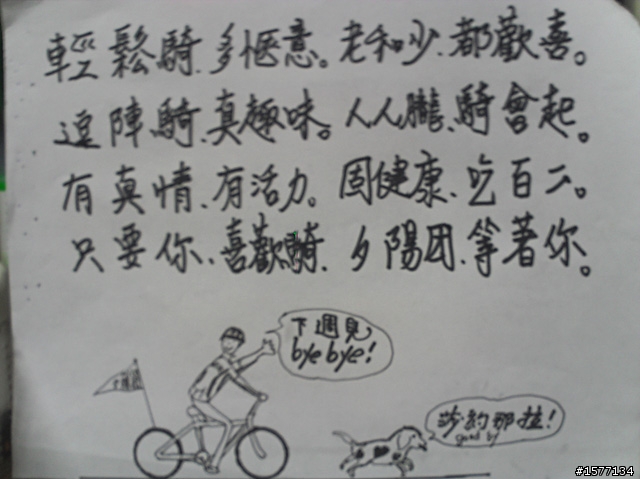 輕鬆騎、多愜意。老和少、都歡喜。
逗陣騎、真趣味。人人攏、騎會起。
有真情、有活力。固健康、吃百二。
只要你、喜歡騎、夕陽团、等著你。
下週見
bye bye!
沙約那拉!
good by
#1577134